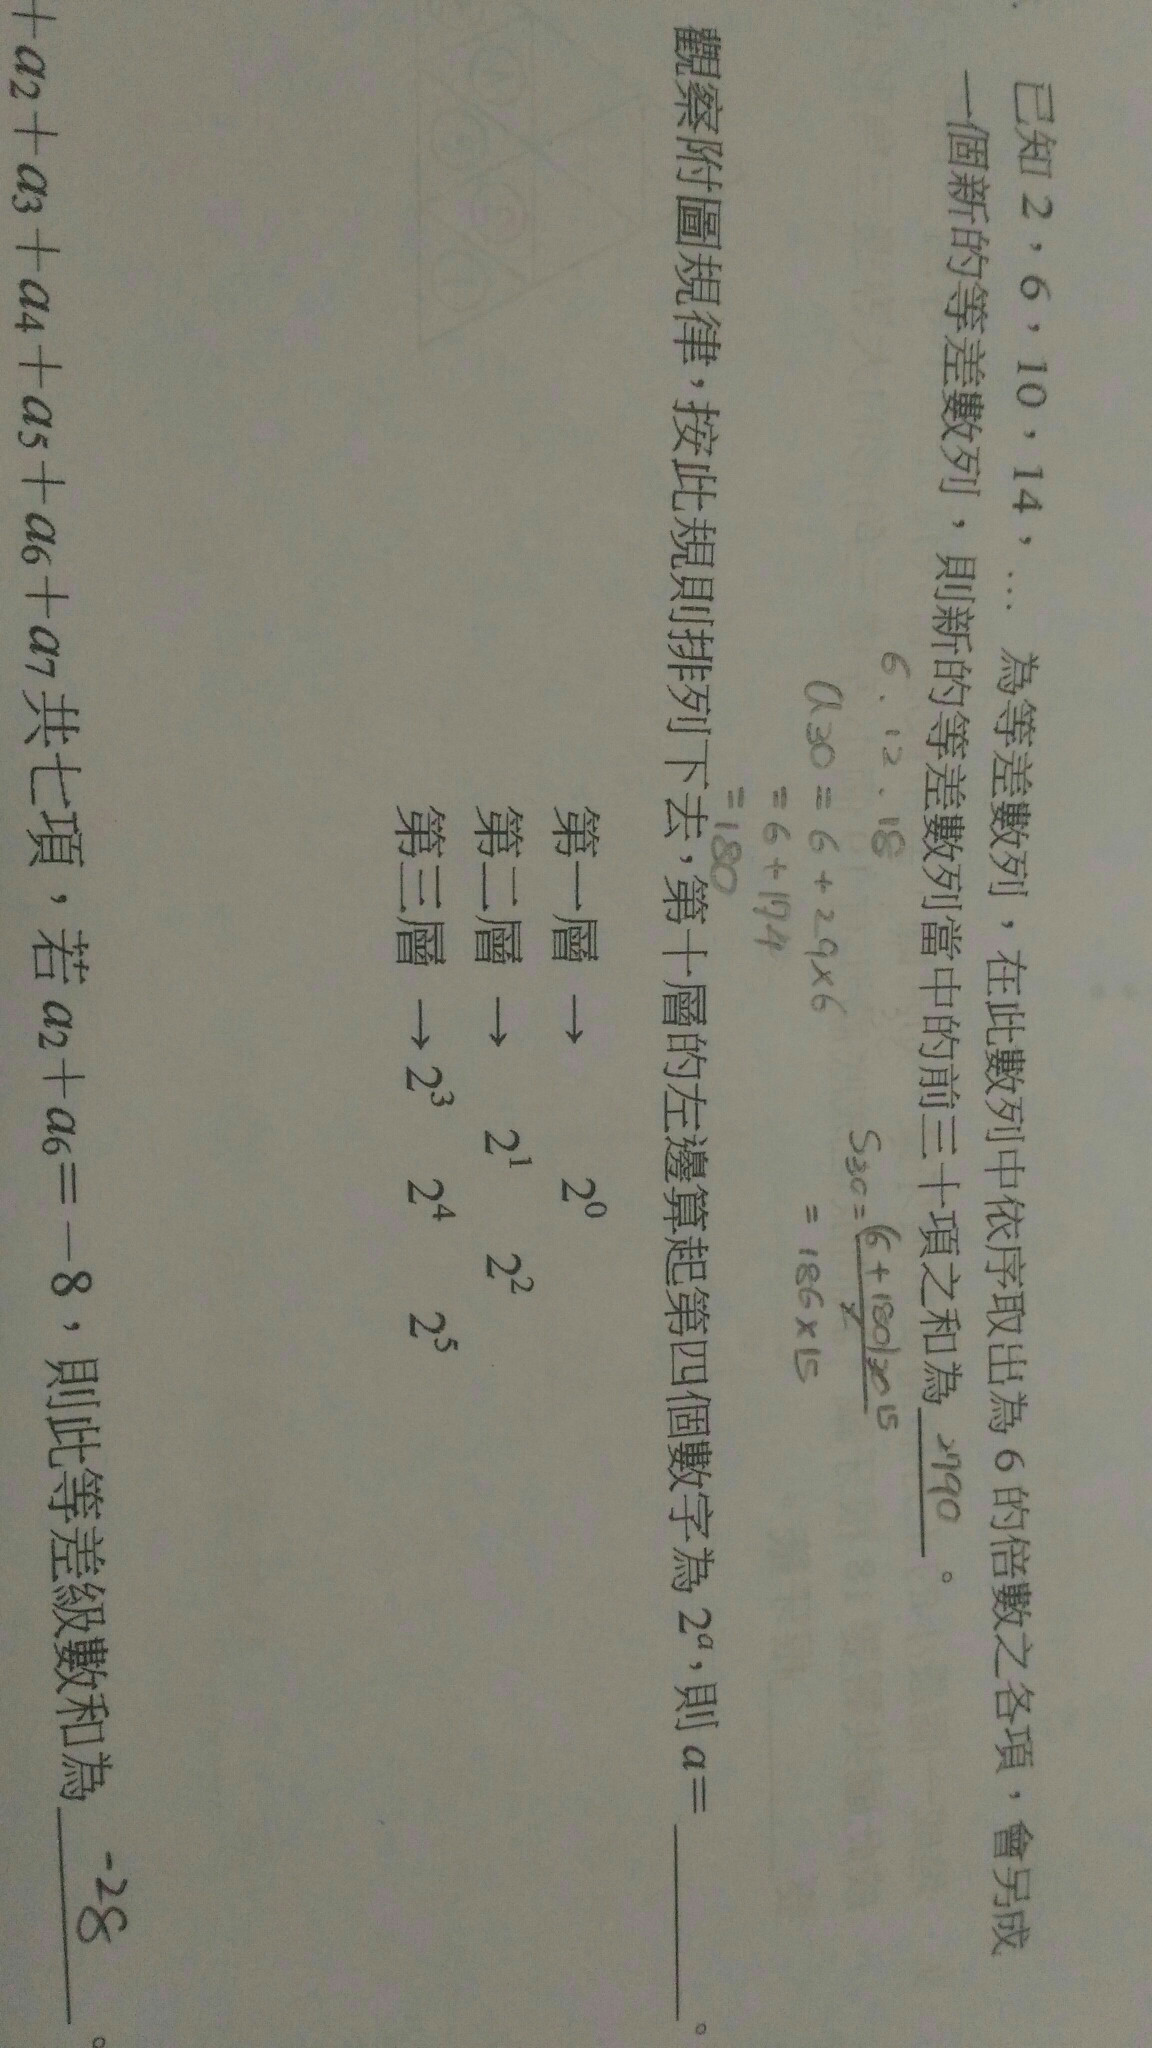 已知 2，6，10，14，… 為等差數列，在此數列中依序取出為 6 的倍數之各項，會另成
一個新的等差數列，則新的等差數列當中的前三十項之和為 2790 。
6、12、18
a30 = 6 + 29×6
= 6 + 174
= 180
S30 = (6+180)30 15
2
= 186×15
觀察附圖規律，按此規則排列下去，第十層的左邊算起第四個數字為 2ᵃ，則 a=＿＿＿。
第一層 → 2⁰
第二層 → 2¹ 2²
第三層 → 2³ 2⁴ 2⁵
+a₂+a₃+a₄+a₅+a₆+a₇共七項，若 a₂+a₆=−8，則此等差級數和為 -28 。